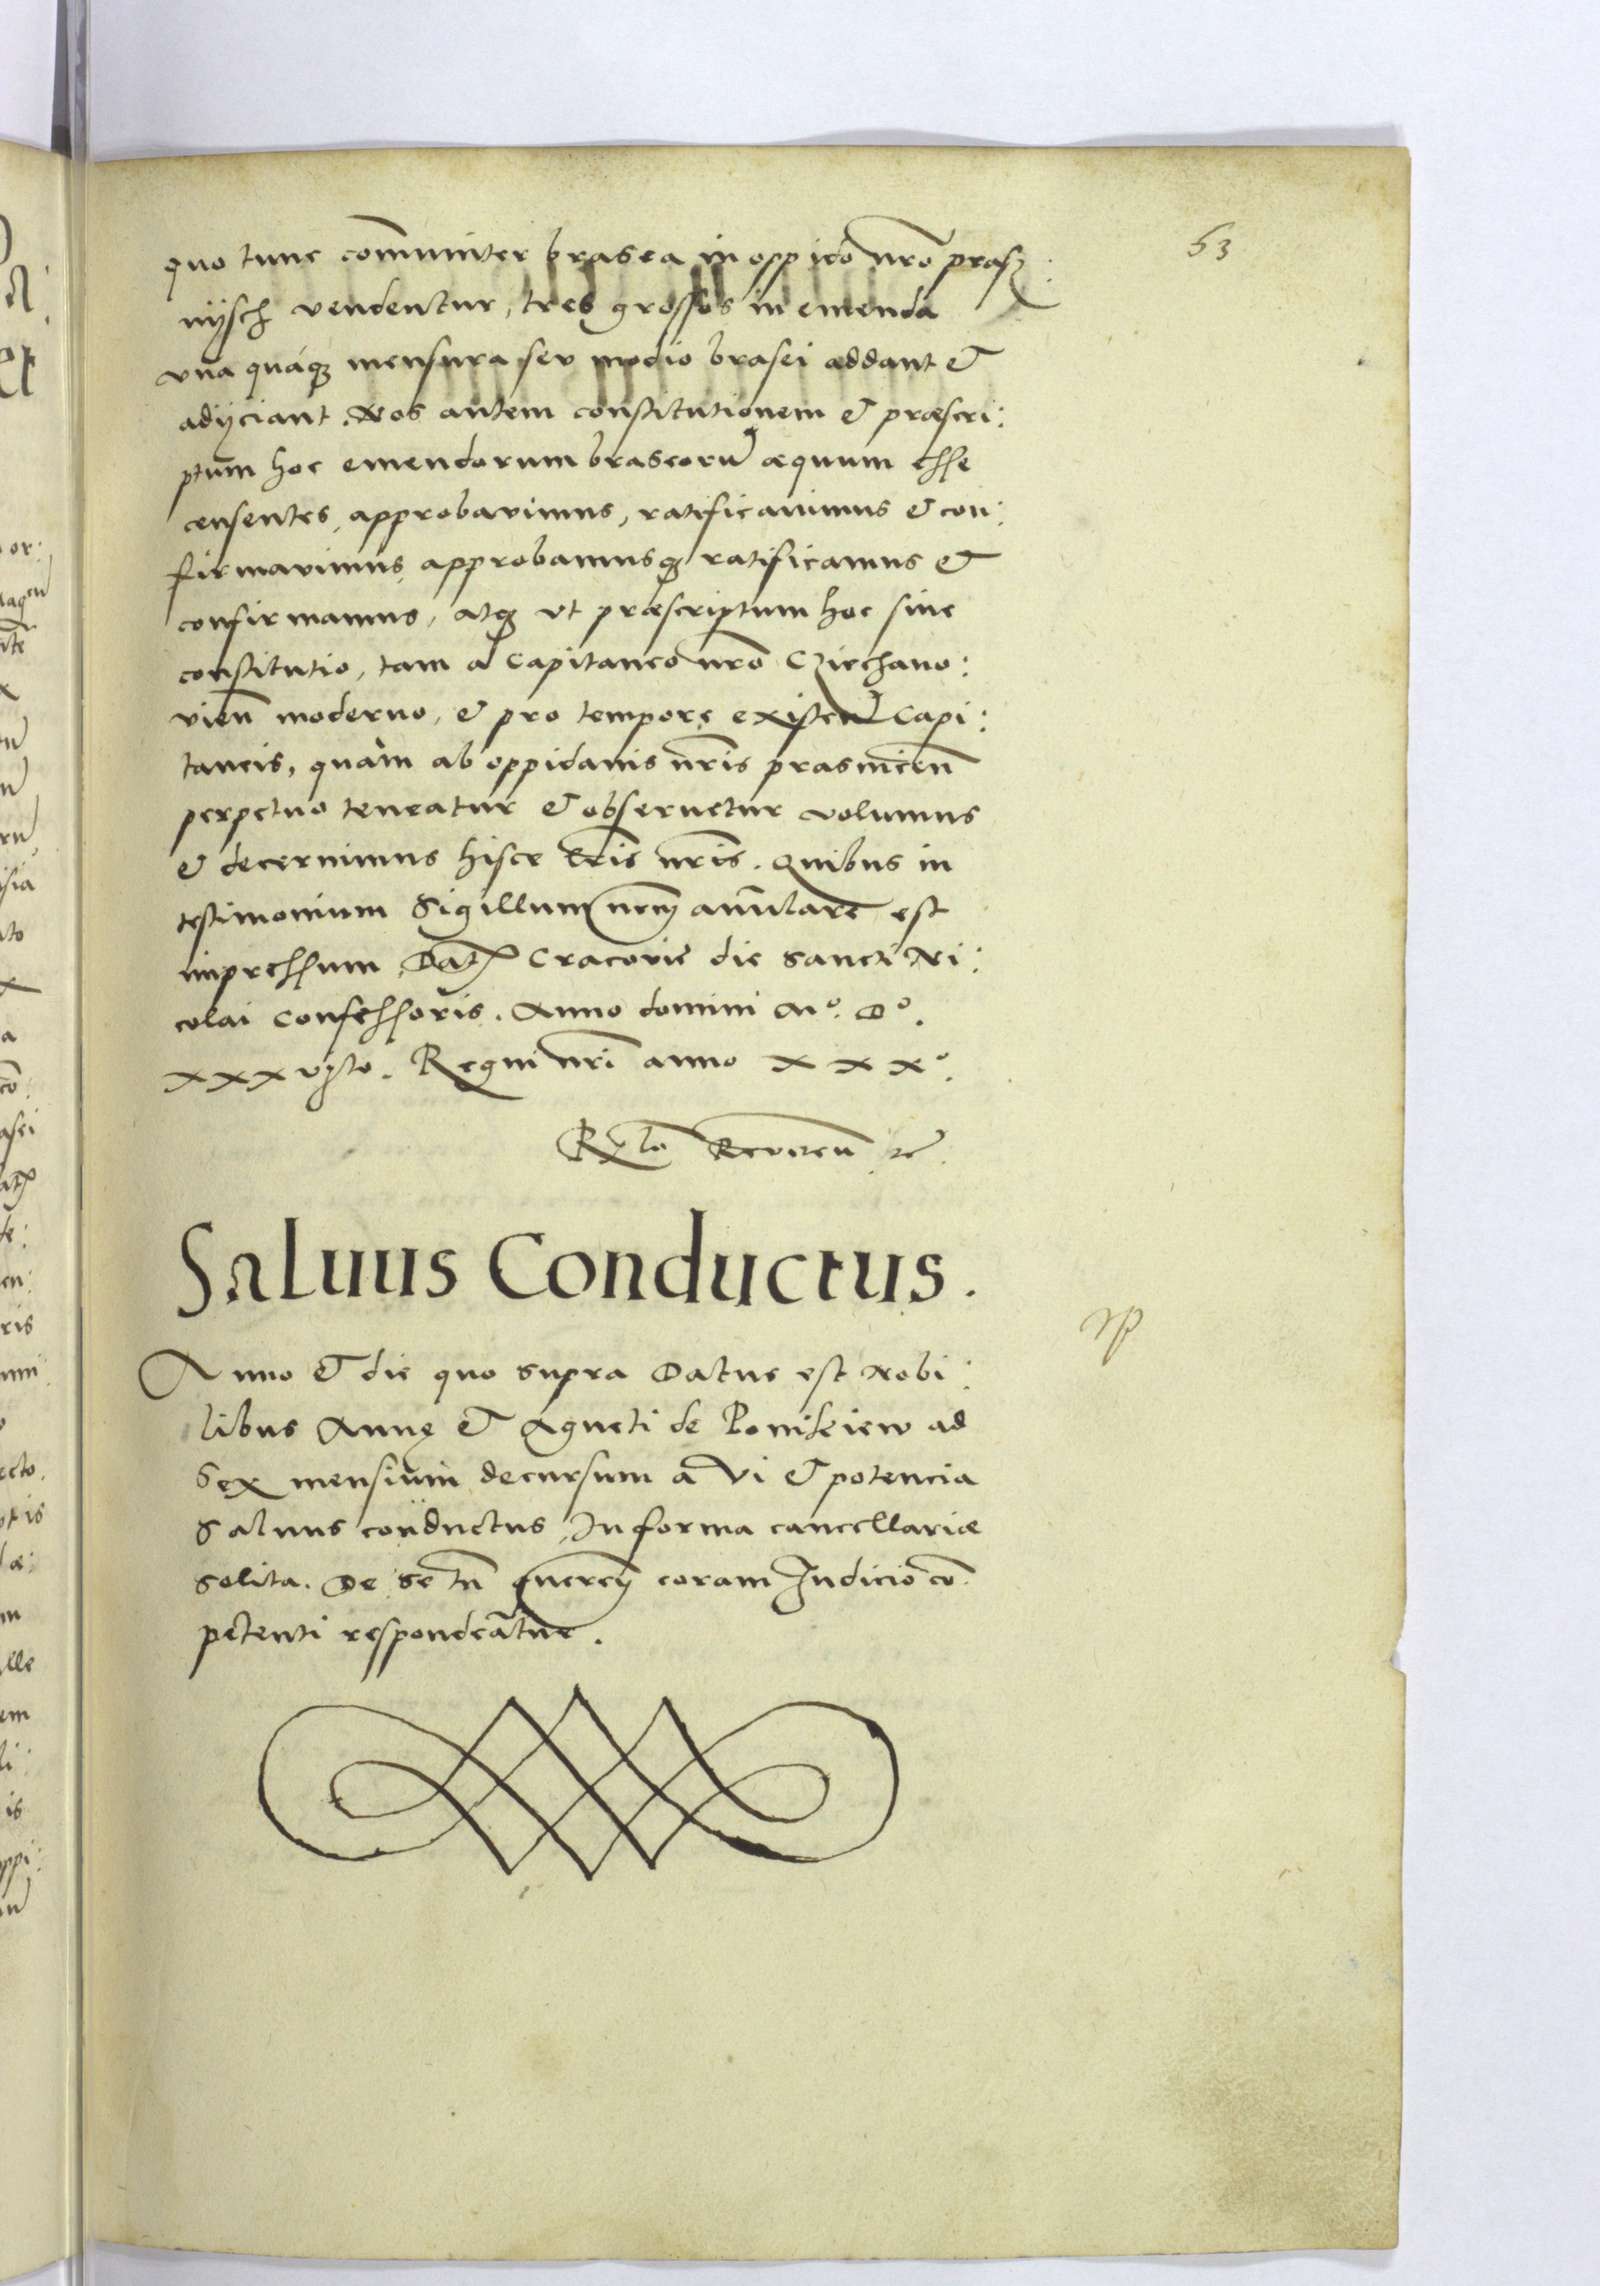 53
quo tunc com̃uniter brasea in oppido nr̃o prasz
nÿsch vendentur, tres grossos in emenda
vna quáqz mensura seu modio brasei addant &
adÿciant. Nos autem constitutionem & præscri:
ptum hoc emendorum braseorũ æquum esse
censentes, approbavimus, ratificauimus & con:
firmavimus, approbamusqz ratificamus &
confirmamus, atqz vt præscriptum hoc siue
constitutio, tam a Capitaneo nr̃o Cziechano:
vieñ moderno, & pro tempore existeñ Capi:
taneis, quàm ab oppidanis nr̃is prasniceñ
perpetuo teneatur & obseruetur volumus
& decernimus hisce l̃ris nr̃is. Quibus in
testimonium Sigillum nr̃m añulare est
impressum. Dat Cracovie die Sancti Ni:
colai Confessoris. Anno domini M°. D°.
xxxvjto. Regni nr̃i anno xxx°.
Rel̃o Reveren
Saluus Conductus.
Anno & die quo supra Datus est Nobi:
libus Annę & Agneti de Ponikiew ad
Sex mensium decursum a vi & potencia
Saluus conductus, In forma cancellariæ
solita. De se tñ querenti coram Iudicio cõ
petenti respondeãtur.